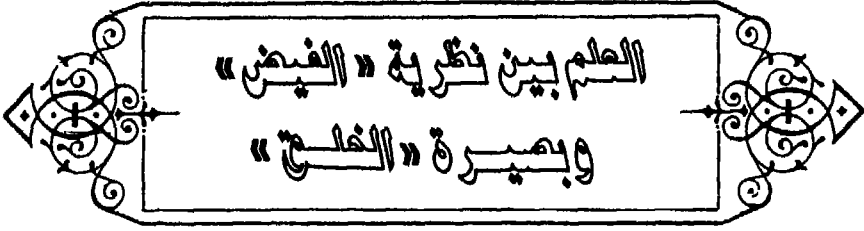 العلم بين نظرية « الفيض »
وبصيرة « الخلق »